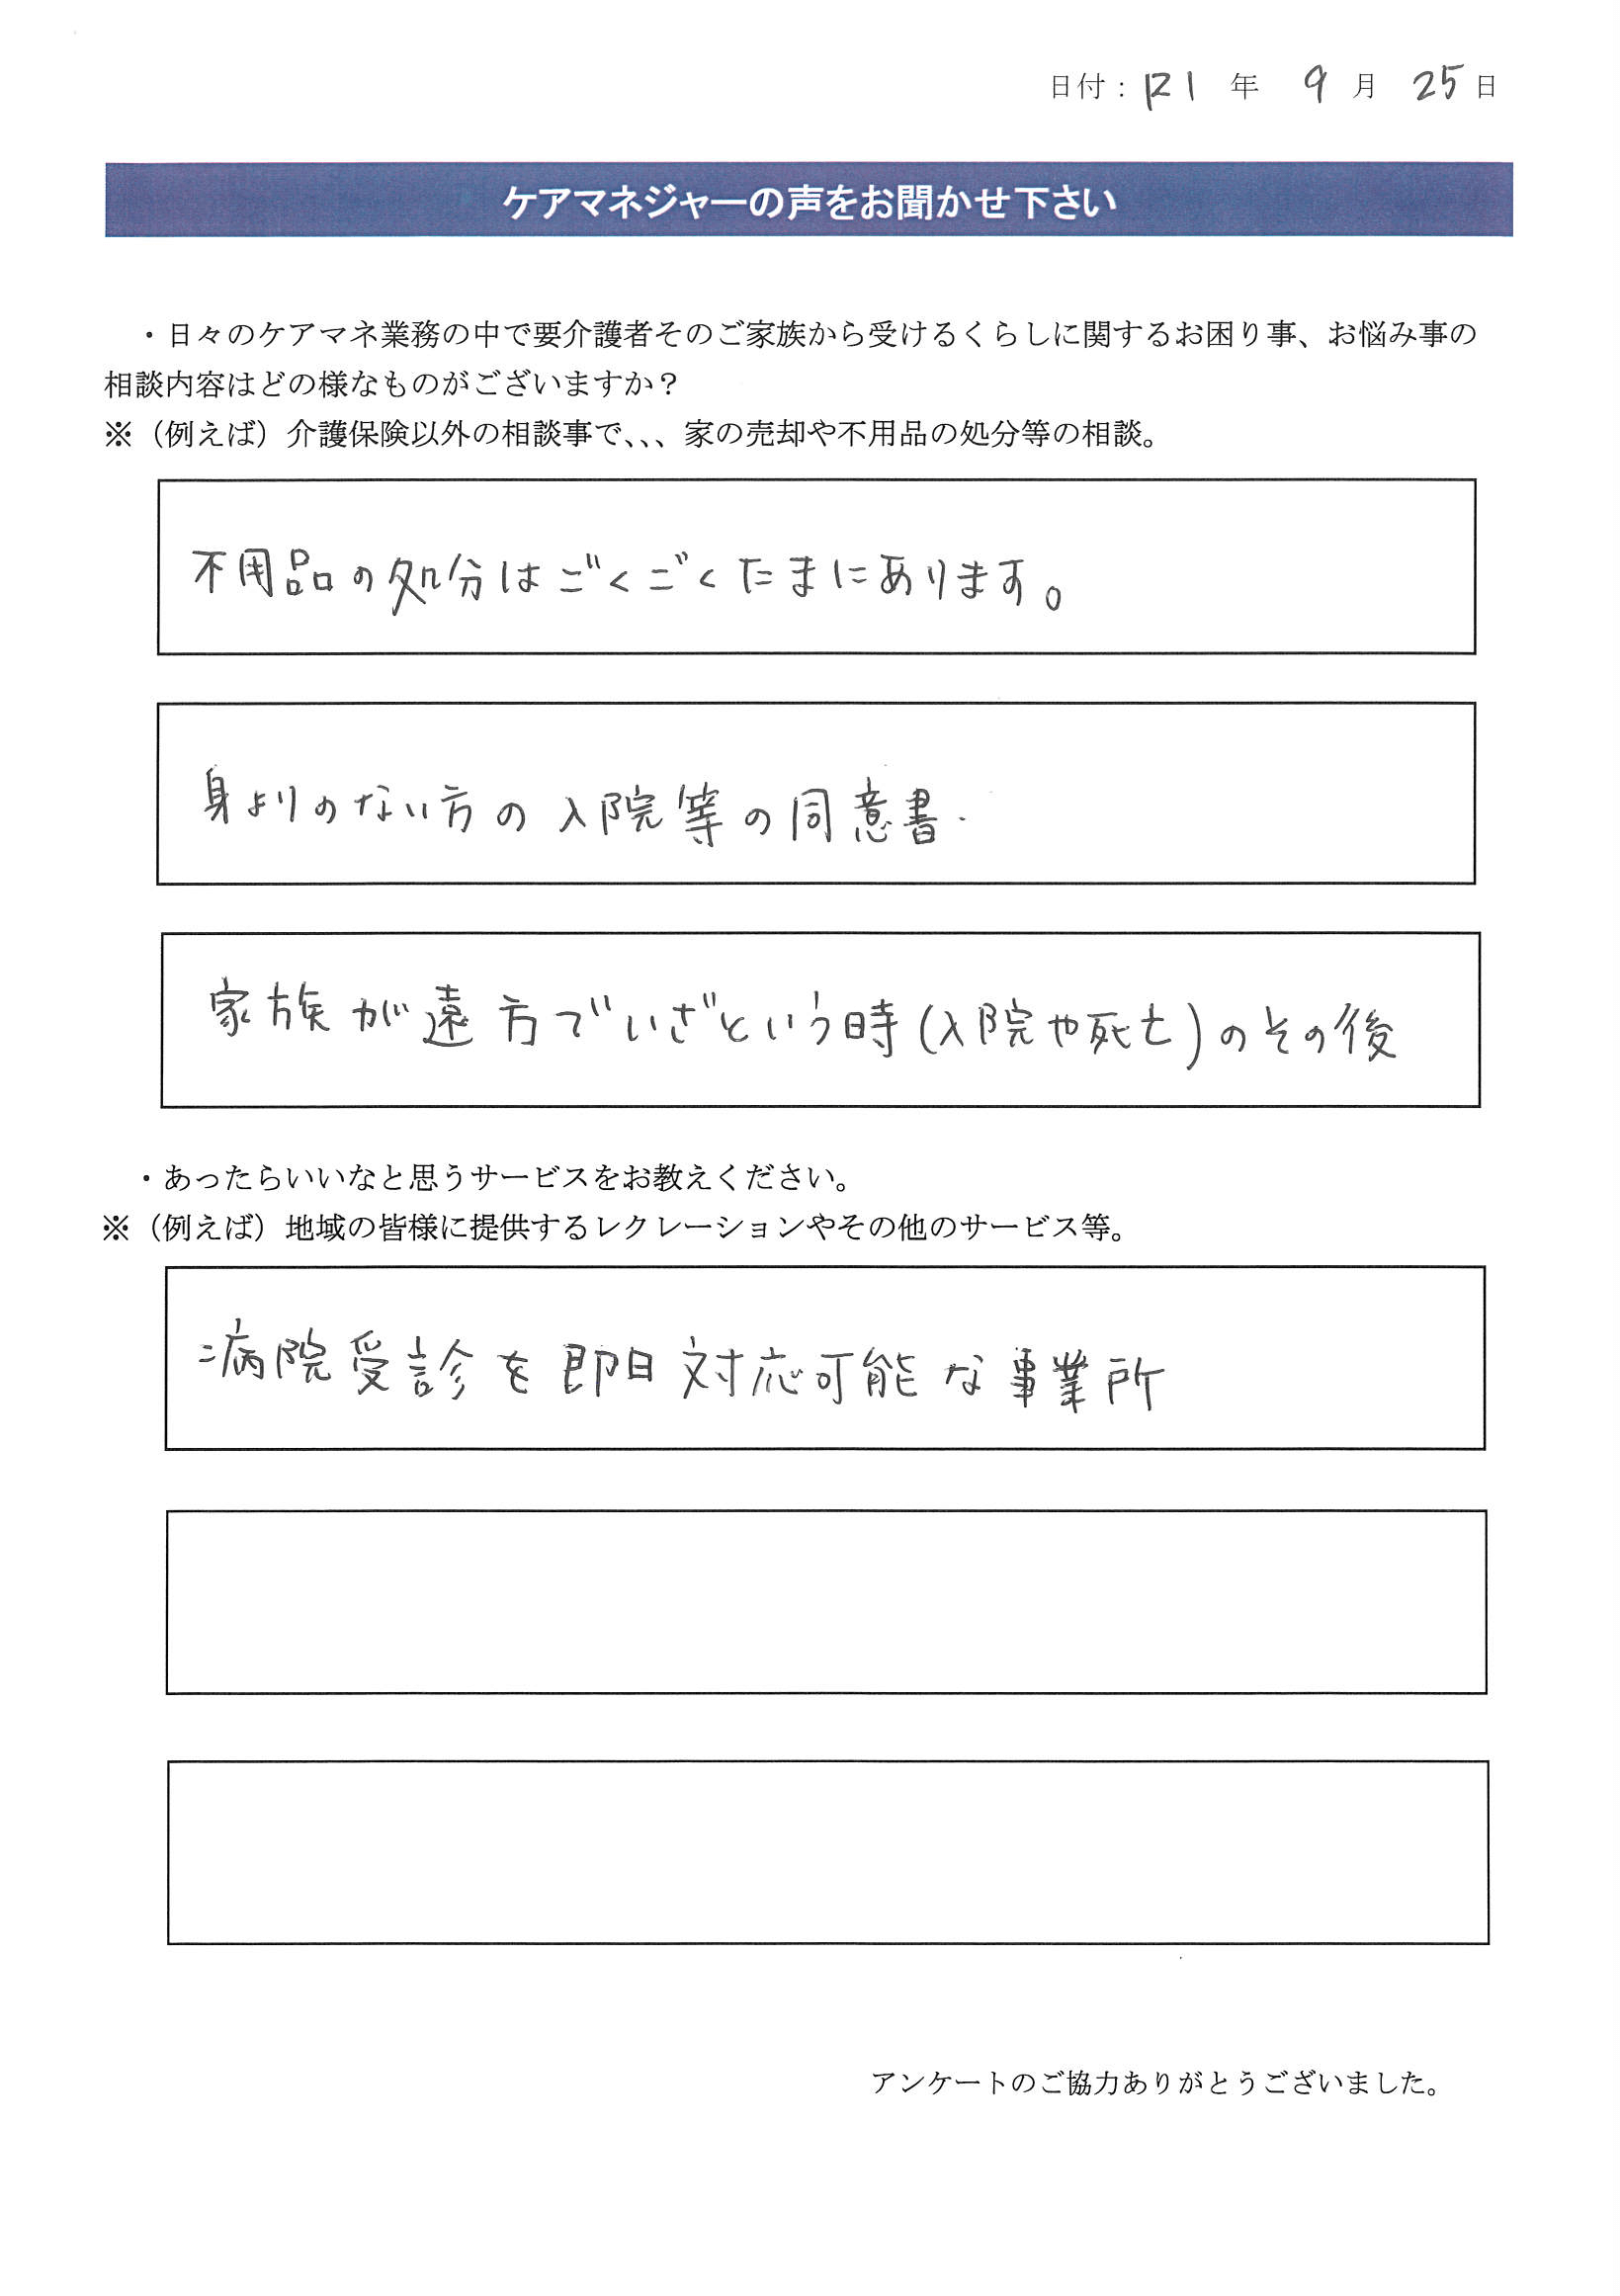 日付：R1 年 9 月 25 日
ケアマネジャーの声をお聞かせ下さい
・日々のケアマネ業務の中で要介護者そのご家族から受けるくらしに関するお困り事、お悩み事の
相談内容はどの様なものがございますか？
※（例えば）介護保険以外の相談事で、、、家の売却や不用品の処分等の相談。
不用品の処分はごくごくたまにあります。
身よりのない方の入院等の同意書.
家族が遠方でいざという時(入院や死亡)のその後
・あったらいいなと思うサービスをお教えください。
※（例えば）地域の皆様に提供するレクレーションやその他のサービス等。
病院受診を即日対応可能な事業所
アンケートのご協力ありがとうございました。